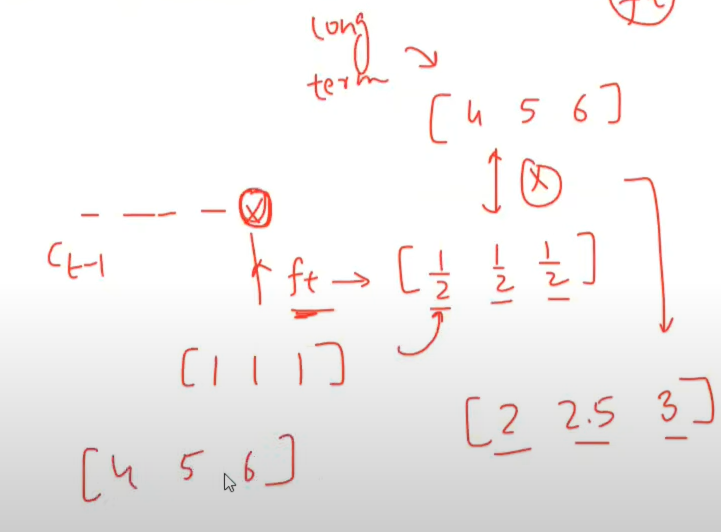 long
term
[ 4 5 6 ]
X
X
C t-1
ft → [ 1/2 1/2 1/2 ]
[ 1 1 1 ]
[ 2 2.5 3 ]
[ 4 5 6 ]